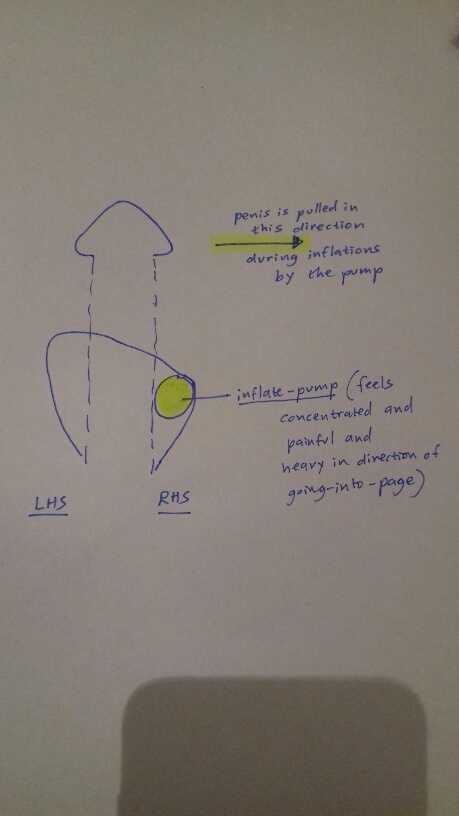 penis is pulled in
this direction
during inflations
by the pump
inflate-pump (feels
concentrated and
painful and
heavy in direction of
going-into-page)
LHS
RHS